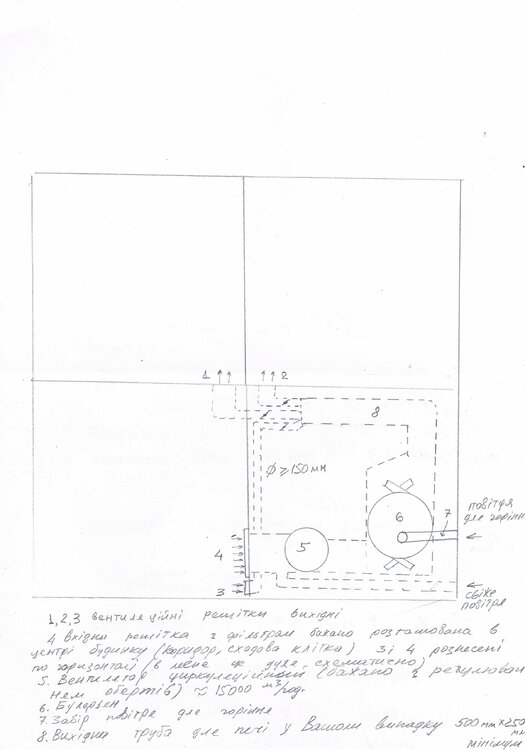 1 2
8
Ф ≥ 150 мм
6
7
повітря
для горіння
5
4
3
свіже
повітря
1,2,3 вентиляційні решітки вихідні
4 Вхідна решітка з фільтром бажано розташована в
центрі будинку (коридор, сходова клітка) зі 4 рознесені
по горизонталі (в мене ж дуже схематично)
5. Вентилятор циркуляційний (бажано з регулюван
ням обертів) ≈ 15000 м³/год.
6. Булерьян
7. Забір повітря для горіння
8. Вихідна труба для печі у Вашому випадку 500 мм х 250
мм
мінімум